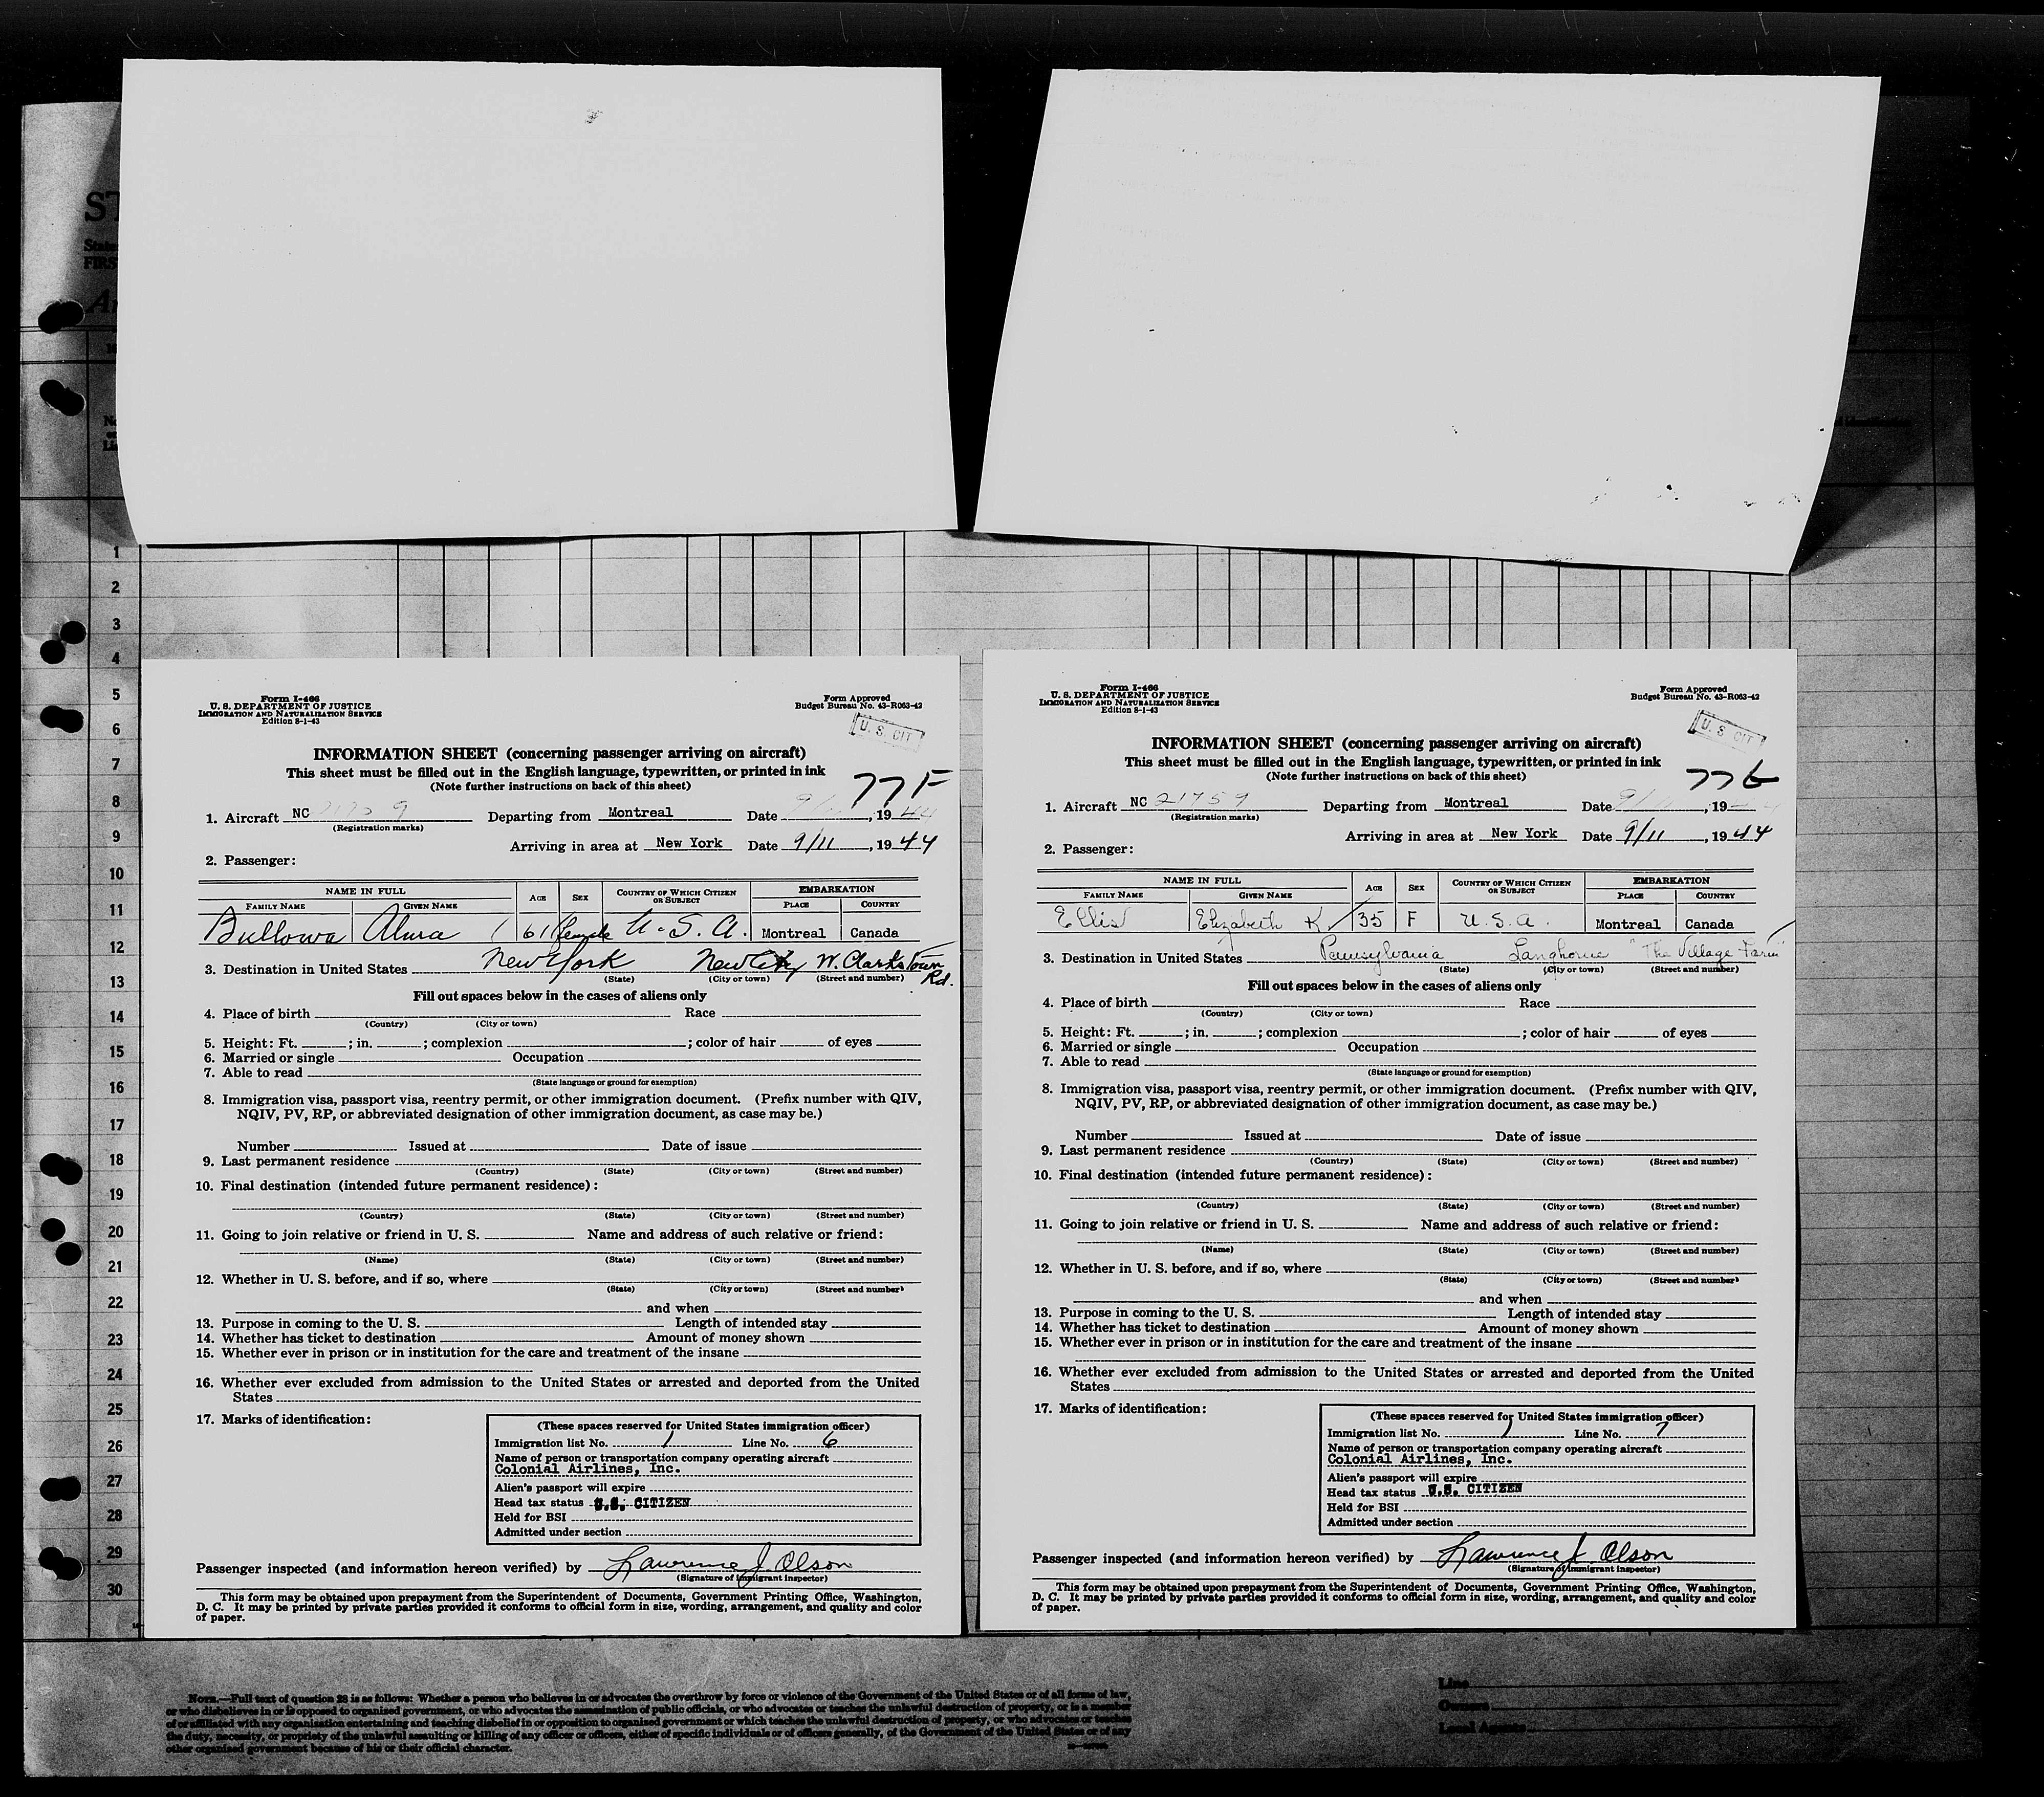 ST
State
FIRS
Ar
No
on
Li
1
2
3
4
5
6
7
8
9
10
11
12
13
14
15
16
17
18
19
20
21
22
23
24
25
26
27
28
29
30
Form I-466
U. S. DEPARTMENT OF JUSTICE
IMMIGRATION AND NATURALIZATION SERVICE
Edition 8-1-43
Form Approved
Budget Bureau No. 43-R063-42
U. S. CIT
INFORMATION SHEET (concerning passenger arriving on aircraft)
This sheet must be filled out in the English language, typewritten, or printed in ink
(Note further instructions on back of this sheet)
77F
1. Aircraft NC Departing from Montreal Date 9/ , 1944
(Registration marks)
Arriving in area at New York Date 9/11, 1944
2. Passenger:
NAME IN FULL AGE SEX COUNTRY OF WHICH CITIZEN OR SUBJECT EMBARKATION
FAMILY NAME GIVEN NAME PLACE COUNTRY
Bullowa Alma 61 female U.S.A. Montreal Canada
3. Destination in United States New York New City W. Clarkstown Rd.
(State) (City or town) (Street and number)
Fill out spaces below in the cases of aliens only
4. Place of birth Race
(Country) (City or town)
5. Height: Ft. ; in. ; complexion ; color of hair of eyes
6. Married or single Occupation
7. Able to read
(State language or ground for exemption)
8. Immigration visa, passport visa, reentry permit, or other immigration document. (Prefix number with QIV,
NQIV, PV, RP, or abbreviated designation of other immigration document, as case may be.)
Number Issued at Date of issue
9. Last permanent residence
(Country) (State) (City or town) (Street and number)
10. Final destination (intended future permanent residence):
(Country) (State) (City or town) (Street and number)
11. Going to join relative or friend in U. S. Name and address of such relative or friend:
(Name) (State) (City or town) (Street and number)
12. Whether in U. S. before, and if so, where
(State) (City or town) (Street and number)
and when
13. Purpose in coming to the U. S. Length of intended stay
14. Whether has ticket to destination Amount of money shown
15. Whether ever in prison or in institution for the care and treatment of the insane
16. Whether ever excluded from admission to the United States or arrested and deported from the United
States
17. Marks of identification:
(These spaces reserved for United States immigration officer)
Immigration list No. 1 Line No. 6
Name of person or transportation company operating aircraft
Colonial Airlines, Inc.
Alien's passport will expire
Head tax status U.S. CITIZEN
Held for BSI
Admitted under section
Passenger inspected (and information hereon verified) by Lawrence J. Olson
(Signature of Immigrant Inspector)
This form may be obtained upon prepayment from the Superintendent of Documents, Government Printing Office, Washington,
D. C. It may be printed by private parties provided it conforms to official form in size, wording, arrangement, and quality and color
of paper.
Form I-466
U. S. DEPARTMENT OF JUSTICE
IMMIGRATION AND NATURALIZATION SERVICE
Edition 8-1-43
Form Approved
Budget Bureau No. 43-R063-42
U. S. CIT
INFORMATION SHEET (concerning passenger arriving on aircraft)
This sheet must be filled out in the English language, typewritten, or printed in ink
(Note further instructions on back of this sheet)
77G
1. Aircraft NC 21759 Departing from Montreal Date 9/ , 19
(Registration marks)
Arriving in area at New York Date 9/11, 1944
2. Passenger:
NAME IN FULL AGE SEX COUNTRY OF WHICH CITIZEN OR SUBJECT EMBARKATION
FAMILY NAME GIVEN NAME PLACE COUNTRY
Ellis Elizabeth K. 35 F U.S.A. Montreal Canada
3. Destination in United States Pennsylvania Langhorne "The Village Farm"
(State) (City or town) (Street and number)
Fill out spaces below in the cases of aliens only
4. Place of birth Race
(Country) (City or town)
5. Height: Ft. ; in. ; complexion ; color of hair of eyes
6. Married or single Occupation
7. Able to read
(State language or ground for exemption)
8. Immigration visa, passport visa, reentry permit, or other immigration document. (Prefix number with QIV,
NQIV, PV, RP, or abbreviated designation of other immigration document, as case may be.)
Number Issued at Date of issue
9. Last permanent residence
(Country) (State) (City or town) (Street and number)
10. Final destination (intended future permanent residence):
(Country) (State) (City or town) (Street and number)
11. Going to join relative or friend in U. S. Name and address of such relative or friend:
(Name) (State) (City or town) (Street and number)
12. Whether in U. S. before, and if so, where
(State) (City or town) (Street and number)
and when
13. Purpose in coming to the U. S. Length of intended stay
14. Whether has ticket to destination Amount of money shown
15. Whether ever in prison or in institution for the care and treatment of the insane
16. Whether ever excluded from admission to the United States or arrested and deported from the United
States
17. Marks of identification:
(These spaces reserved for United States immigration officer)
Immigration list No. 1 Line No. 7
Name of person or transportation company operating aircraft
Colonial Airlines, Inc.
Alien's passport will expire
Head tax status U.S. CITIZEN
Held for BSI
Admitted under section
Passenger inspected (and information hereon verified) by Lawrence J. Olson
(Signature of Immigrant Inspector)
This form may be obtained upon prepayment from the Superintendent of Documents, Government Printing Office, Washington,
D. C. It may be printed by private parties provided it conforms to official form in size, wording, arrangement, and quality and color
of paper.
NOTE.—Full text of question 28 is as follows: Whether a person who believes in or advocates the overthrow by force or violence of the Government of the United States or of all forms of law,
or who disbelieves in or is opposed to organized government, or who advocates the assassination of public officials, or who advocates or teaches the unlawful destruction of property, or is a member
of or affiliated with any organization entertaining and teaching disbelief in or opposition to organized government or which teaches the unlawful destruction of property, or who advocates or teaches
the duty, necessity, or propriety of the unlawful assaulting or killing of any officer or officers, either of specific individuals or of officers generally, of the Government of the United States or of any
other organized government because of his or their official character.
Line
Owners
Local Agents